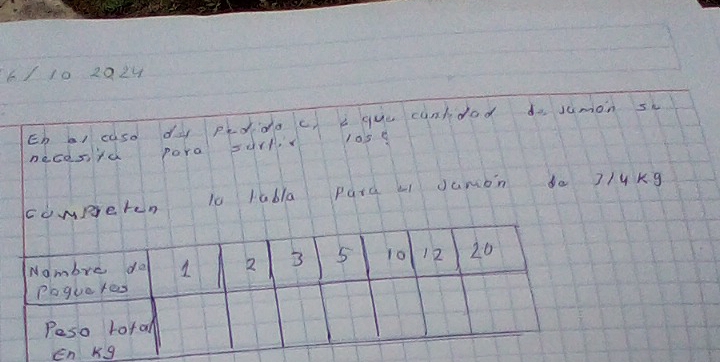 6/10 2024
En el caso del Pedido c, ¿ que cantidad de Jamón se
necesita para surtir los?
Compreten la tabla para el Jamón de 3/4 kg
Nombre de 1 2 3 5 10 12 20
Poquetes
Peso total
En kg